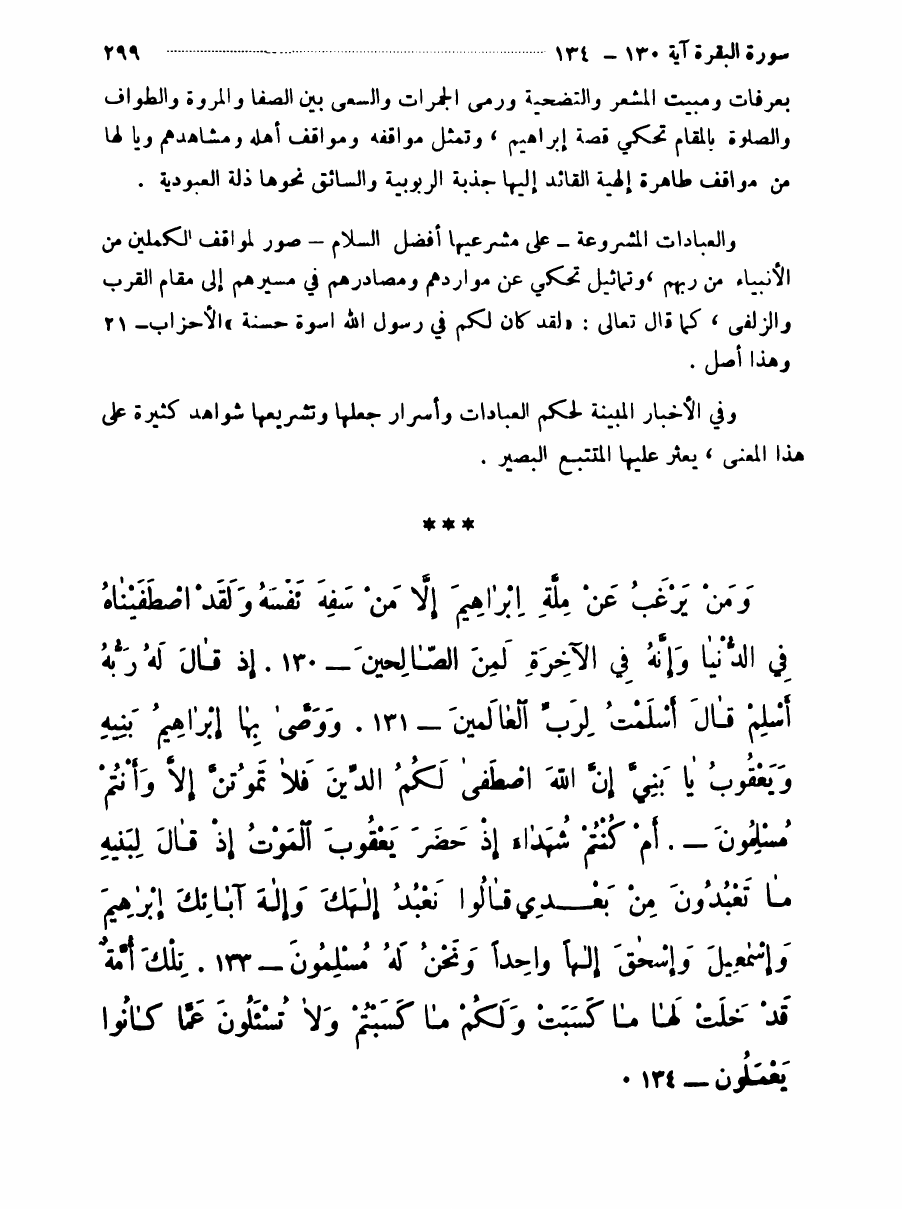 سورة البقرة آية ١٣٠ – ١٣٤ ٢٩٩
بعرفات ومبيت المشعر والتضحية ورمى الجمرات والسعى بين الصفا والمروة والطواف
والصلوة بالمقام تحكي قصة إبراهيم ، وتمثل مواقفه ومواقف أهله ومشاهدهم ويا لها
من مواقف طاهرة إلهية القائد إليها جذبة الربوبية والسائق نحوها ذلة العبودية .
والعبادات المشروعة – على مشرعيها أفضل السلام – صور لمواقف الكملين من
الأنبياء من ربهم ، وتماثيل تحكي عن مواردهم ومصادرهم في مسيرهم إلى مقام القرب
والزلفى ، كما قال تعالى : «لقد كان لكم في رسول الله اسوة حسنة »الأحزاب– ٢١
وهذا أصل .
وفي الأخبار المبينة لحكم العبادات وأسرار جعلها وتشريعها شواهد كثيرة على
هذا المعنى ، يعثر عليها المتتبع البصير .
***
وَمَنْ يَرْغَبُ عَنْ مِلَّةِ إِبْراهِيمَ إِلَّا مَنْ سَفِهَ نَفْسَهُ وَلَقَدْ اصْطَفَيْنٰاهُ
فِي الدُّنْيٰا وَإِنَّهُ فِي الآخِرَةِ لَمِنَ الصّٰالِحينَ – ١٣٠ . إِذ قٰالَ لَهُ رَبُّهُ
أَسْلِمْ قٰالَ أَسْلَمْتُ لِرَبِّ ٱلْعٰالَمينَ – ١٣١ . وَوَصّٰى بِهٰا إِبْرٰاهِيمُ بَنِيهِ
وَيَعْقُوبُ يٰا بَنِيَّ إِنَّ اللهَ اصْطَفىٰ لَكُمُ الدّينَ فَلاٰ تَمُوتُنَّ إِلاَّ وَأَنْتُمْ
مُسْلِمُونَ – . أَمْ كُنْتُمْ شُهَدٰاءَ إِذْ حَضَرَ يَعْقُوبَ ٱلْمَوْتُ إِذْ قٰالَ لِبَنيهِ
مٰا تَعْبُدُونَ مِنْ بَعْـــدِي قٰالُوا نَعْبُدُ إِلٰهَكَ وَإِلٰهَ آبٰائِكَ إِبْرٰهِيمَ
وَإِسْمٰعِيلَ وَإِسْحٰقَ إِلٰهاً واحِداً وَنَحْنُ لَهُ مُسْلِمُونَ – ١٣٣ . تِلْكَ أُمَّةٌ
قَدْ خَلَتْ لَهٰا مٰا كَسَبَتْ وَلَكُمْ مٰا كَسَبْتُمْ وَلاٰ تُسْئَلُونَ عَمَّا كٰانُوا
يَعْمَلُونَ – ١٣٤ .